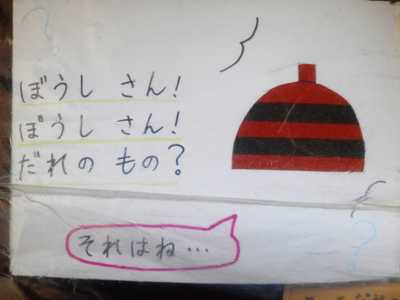 ぼうし さん!
ぼうし さん!
だれの もの?
それはね…